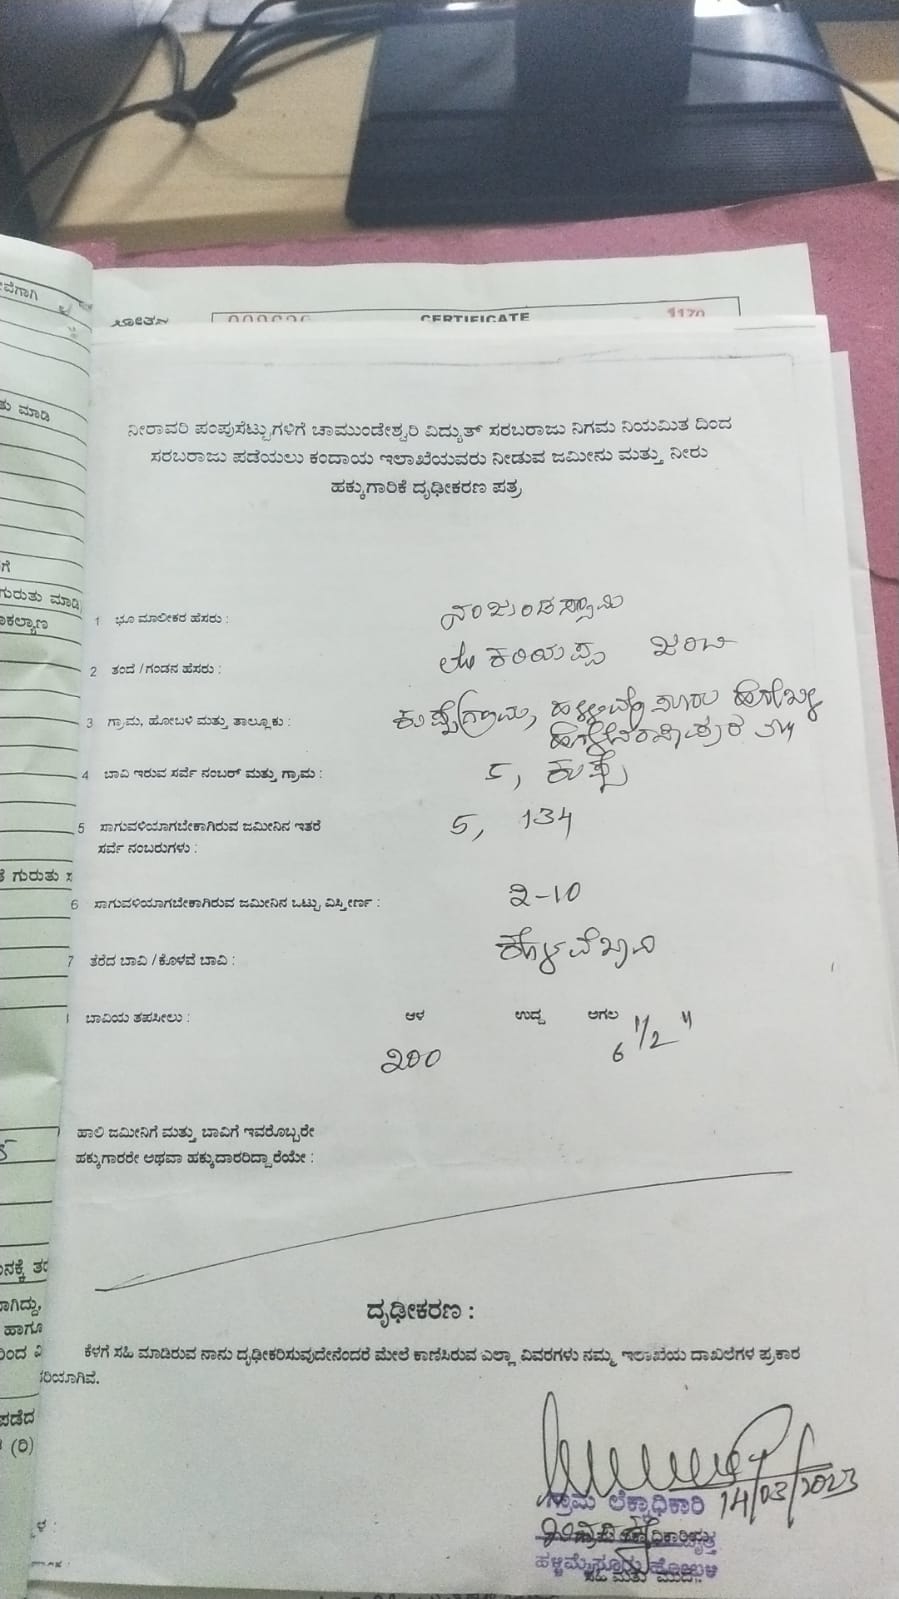 ವೆಗಾಗಿ
CERTIFICATE
1170
ತು ಮಾಡಿ
ಗೆ
ಗುರುತು ಮಾಡಿ
ಕಲ್ಯಾಣ
ಕೆ ಗುರುತು ಸ
ನೀರಾವರಿ ಪಂಪುಸೆಟ್ಟುಗಳಿಗೆ ಚಾಮುಂಡೇಶ್ವರಿ ವಿದ್ಯುತ್ ಸರಬರಾಜು ನಿಗಮ ನಿಯಮಿತ ದಿಂದ
ಸರಬರಾಜು ಪಡೆಯಲು ಕಂದಾಯ ಇಲಾಖೆಯವರು ನೀಡುವ ಜಮೀನು ಮತ್ತು ನೀರು
ಹಕ್ಕುಗಾರಿಕೆ ದೃಢೀಕರಣ ಪತ್ರ
1 ಭೂ ಮಾಲೀಕರ ಹೆಸರು : ನಂಜುಂಡಸ್ವಾಮಿ
2 ತಂದೆ / ಗಂಡನ ಹೆಸರು : ಕರಿಯಪ್ಪ
3 ಗ್ರಾಮ, ಹೋಬಳಿ ಮತ್ತು ತಾಲ್ಲೂಕು :
4 ಬಾವಿ ಇರುವ ಸರ್ವೆ ನಂಬರ್ ಮತ್ತು ಗ್ರಾಮ : 5,
5 ಸಾಗುವಳಿಯಾಗಬೇಕಾಗಿರುವ ಜಮೀನಿನ ಇತರೆ 5, 134
ಸರ್ವೆ ನಂಬರುಗಳು :
6 ಸಾಗುವಳಿಯಾಗಬೇಕಾಗಿರುವ ಜಮೀನಿನ ಒಟ್ಟು ವಿಸ್ತೀರ್ಣ : 2-10
7 ತೆರೆದ ಬಾವಿ / ಕೊಳವೆ ಬಾವಿ : ಕೊಳವೆಬಾವಿ
ಬಾವಿಯ ತಪಸೀಲು : ಆಳ ಉದ್ದ ಅಗಲ
200 6 1/2 "
ಹಾಲಿ ಜಮೀನಿಗೆ ಮತ್ತು ಬಾವಿಗೆ ಇವರೊಬ್ಬರೇ
ಹಕ್ಕುಗಾರರೇ ಅಥವಾ ಹಕ್ಕುದಾರರಿದ್ದಾರೆಯೇ :
ದೃಢೀಕರಣ :
ಕೆಳಗೆ ಸಹಿ ಮಾಡಿರುವ ನಾನು ದೃಢೀಕರಿಸುವುದೇನೆಂದರೆ ಮೇಲೆ ಕಾಣಿಸಿರುವ ಎಲ್ಲಾ ವಿವರಗಳು ನಮ್ಮ ಇಲಾಖೆಯ ದಾಖಲೆಗಳ ಪ್ರಕಾರ
ಸರಿಯಾಗಿವೆ.
14/03/2023
ಗ್ರಾಮ ಲೆಕ್ಕಾಧಿಕಾರಿ
ಹಳ್ಳಿಮೈಸೂರು ಹೋಬಳಿ
ನಕ್ಕೆ ತ
ಾಗಿದ್ದು,
ಹಾಗೂ
ರಿಂದ ವಿ
ಪಡೆದ
(ರಿ)